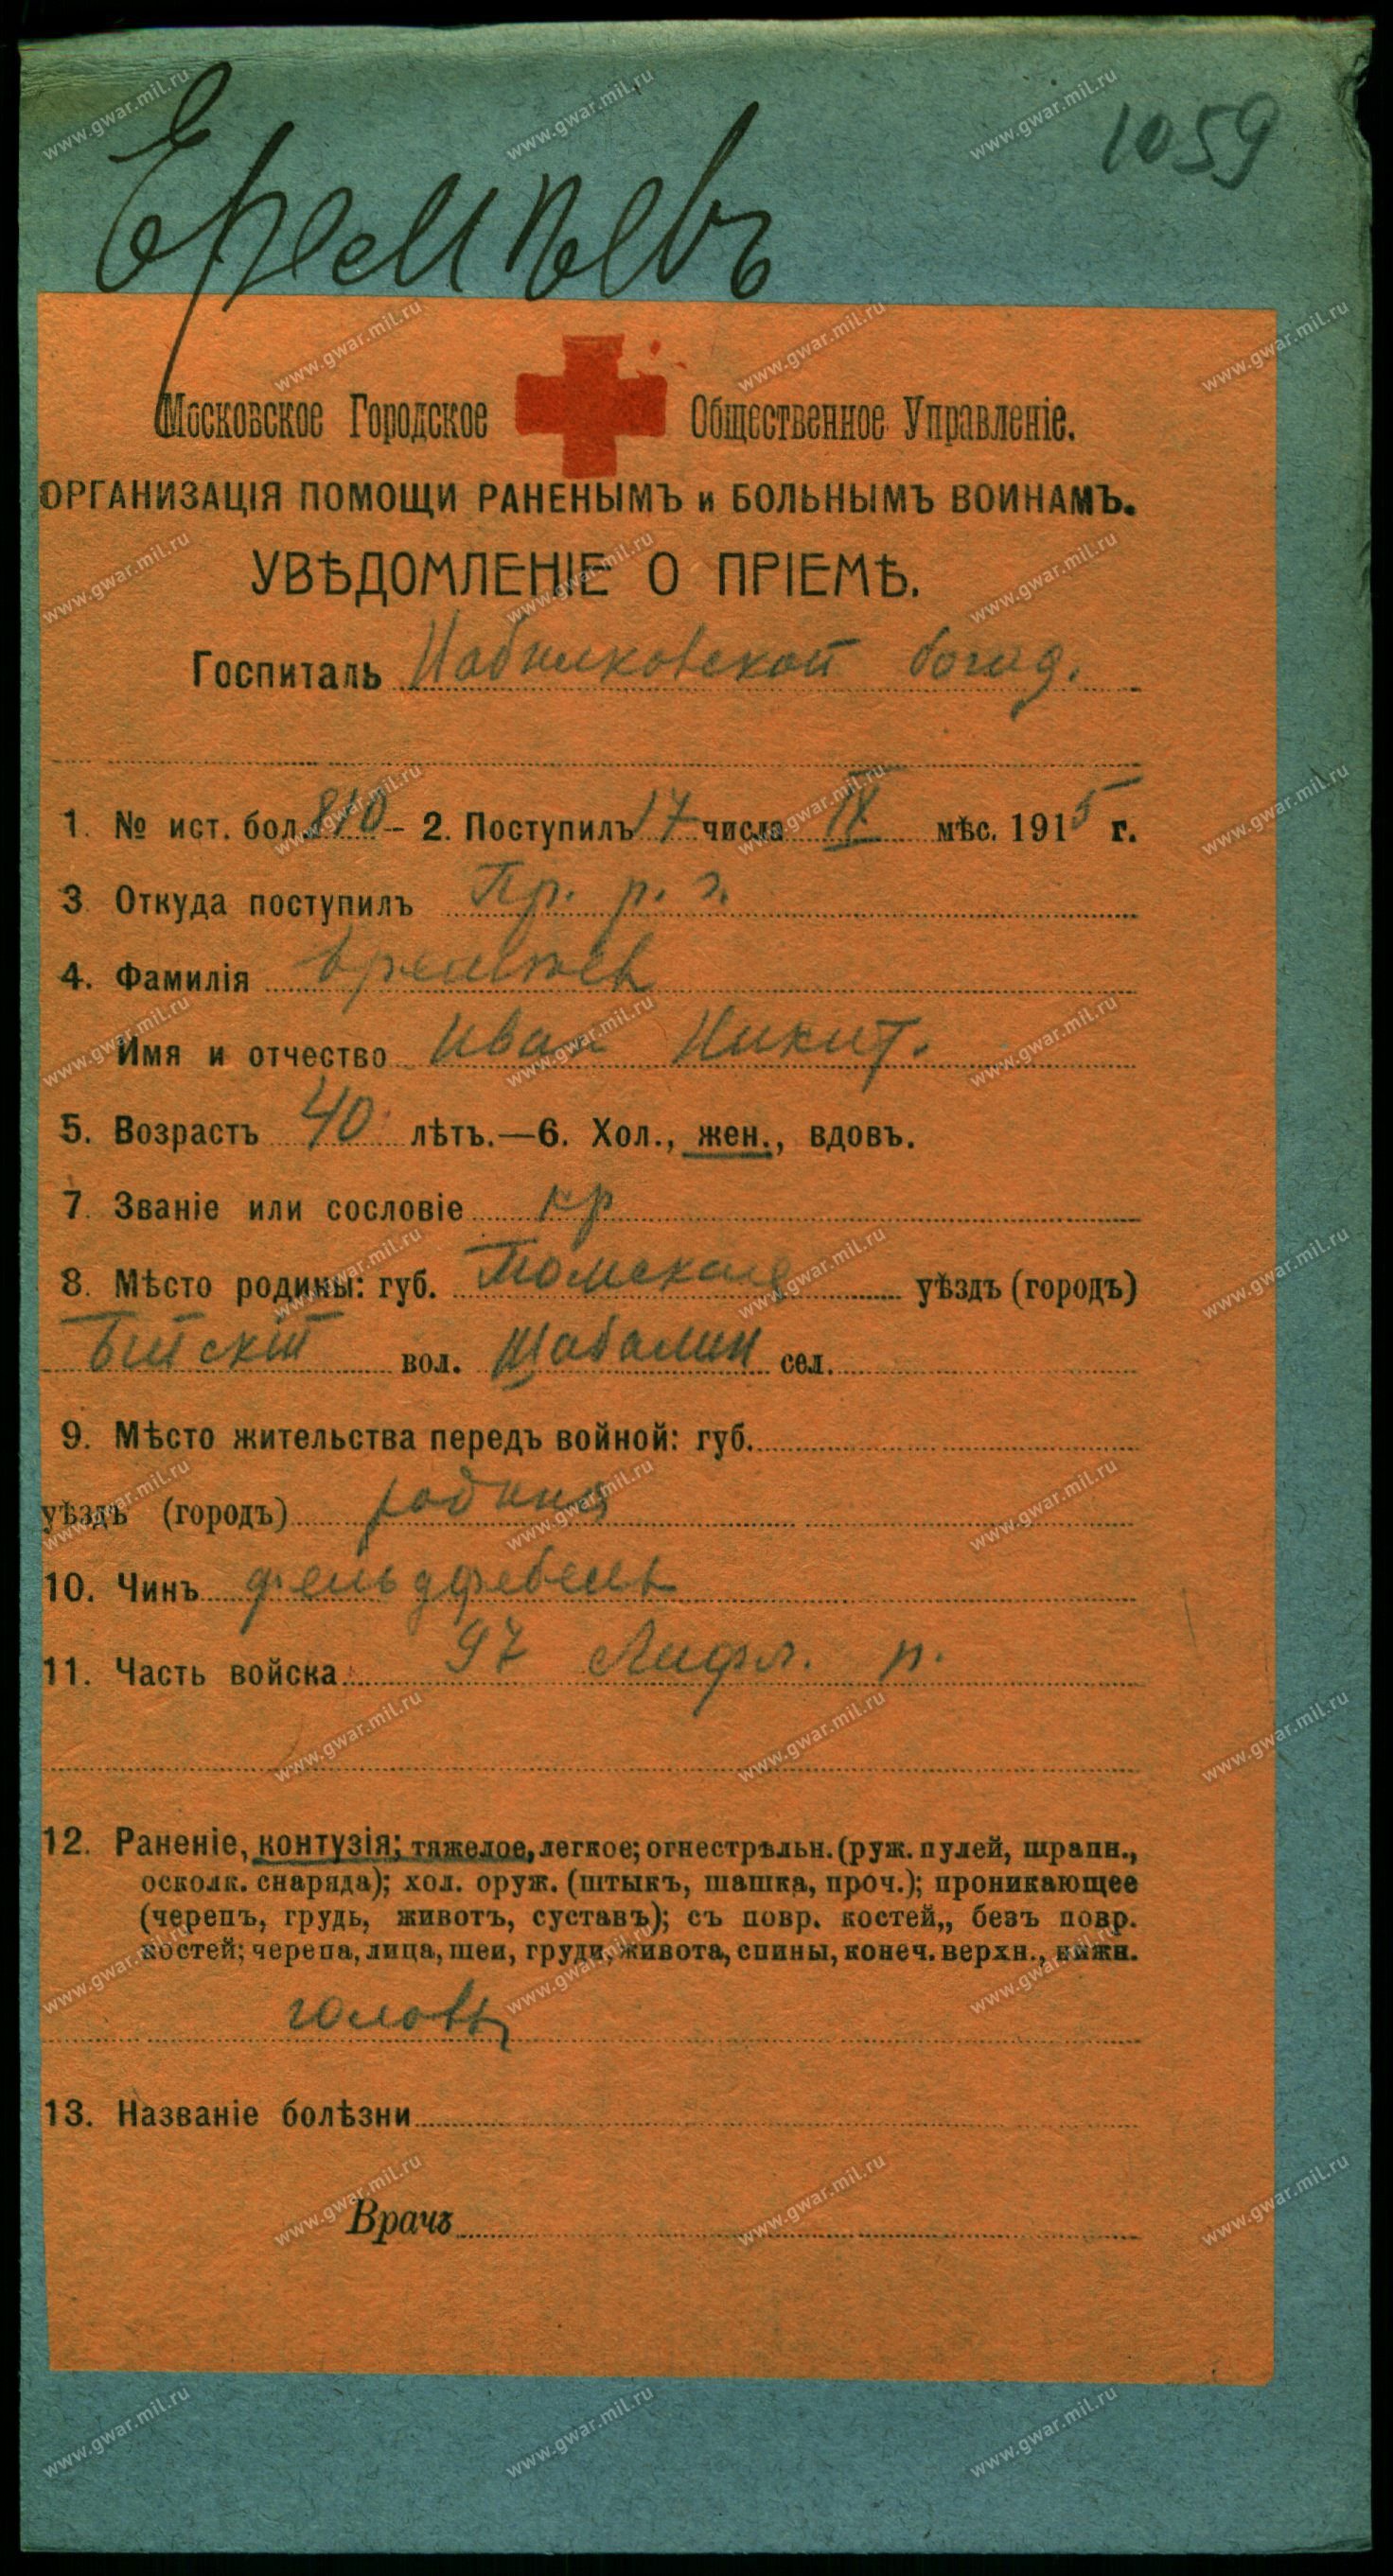 1059
Еремѣевъ
Московское Городское Общественное Управленіе.
ОРГАНИЗАЦІЯ ПОМОЩИ РАНЕНЫМЪ и БОЛЬНЫМЪ ВОИНАМЪ.
УВѢДОМЛЕНІЕ О ПРІЕМѢ.
Госпиталь Набилковской богад.
1. № ист. бол. 810 – 2. Поступилъ 17 числа IX мѣс. 1915 г.
3. Откуда поступилъ Пр. р. г.
4. Фамилія
Имя и отчество Иван Никит.
5. Возрастъ 40 лѣтъ.—6. Хол., жен., вдовъ.
7. Званіе или сословіе кр
8. Мѣсто родины: губ. Томская уѣздъ (городъ)
Бійскій вол. Шабалин сел.
9. Мѣсто жительства передъ войной: губ.
уѣздъ (городъ) родина
10. Чинъ фельдфебель
11. Часть войска 97 Лифл. п.
12. Раненіе, контузія; тяжелое, легкое; огнестрѣльн. (руж. пулей, шрапн.,
осколк. снаряда); хол. оруж. (штыкъ, шашка, проч.); проникающее
(черепъ, грудь, животъ, суставъ); съ повр. костей,, безъ повр.
костей; черепа, лица, шеи, груди, живота, спины, конеч. верхн., нижн.
головы
13. Названіе болѣзни
Врачъ